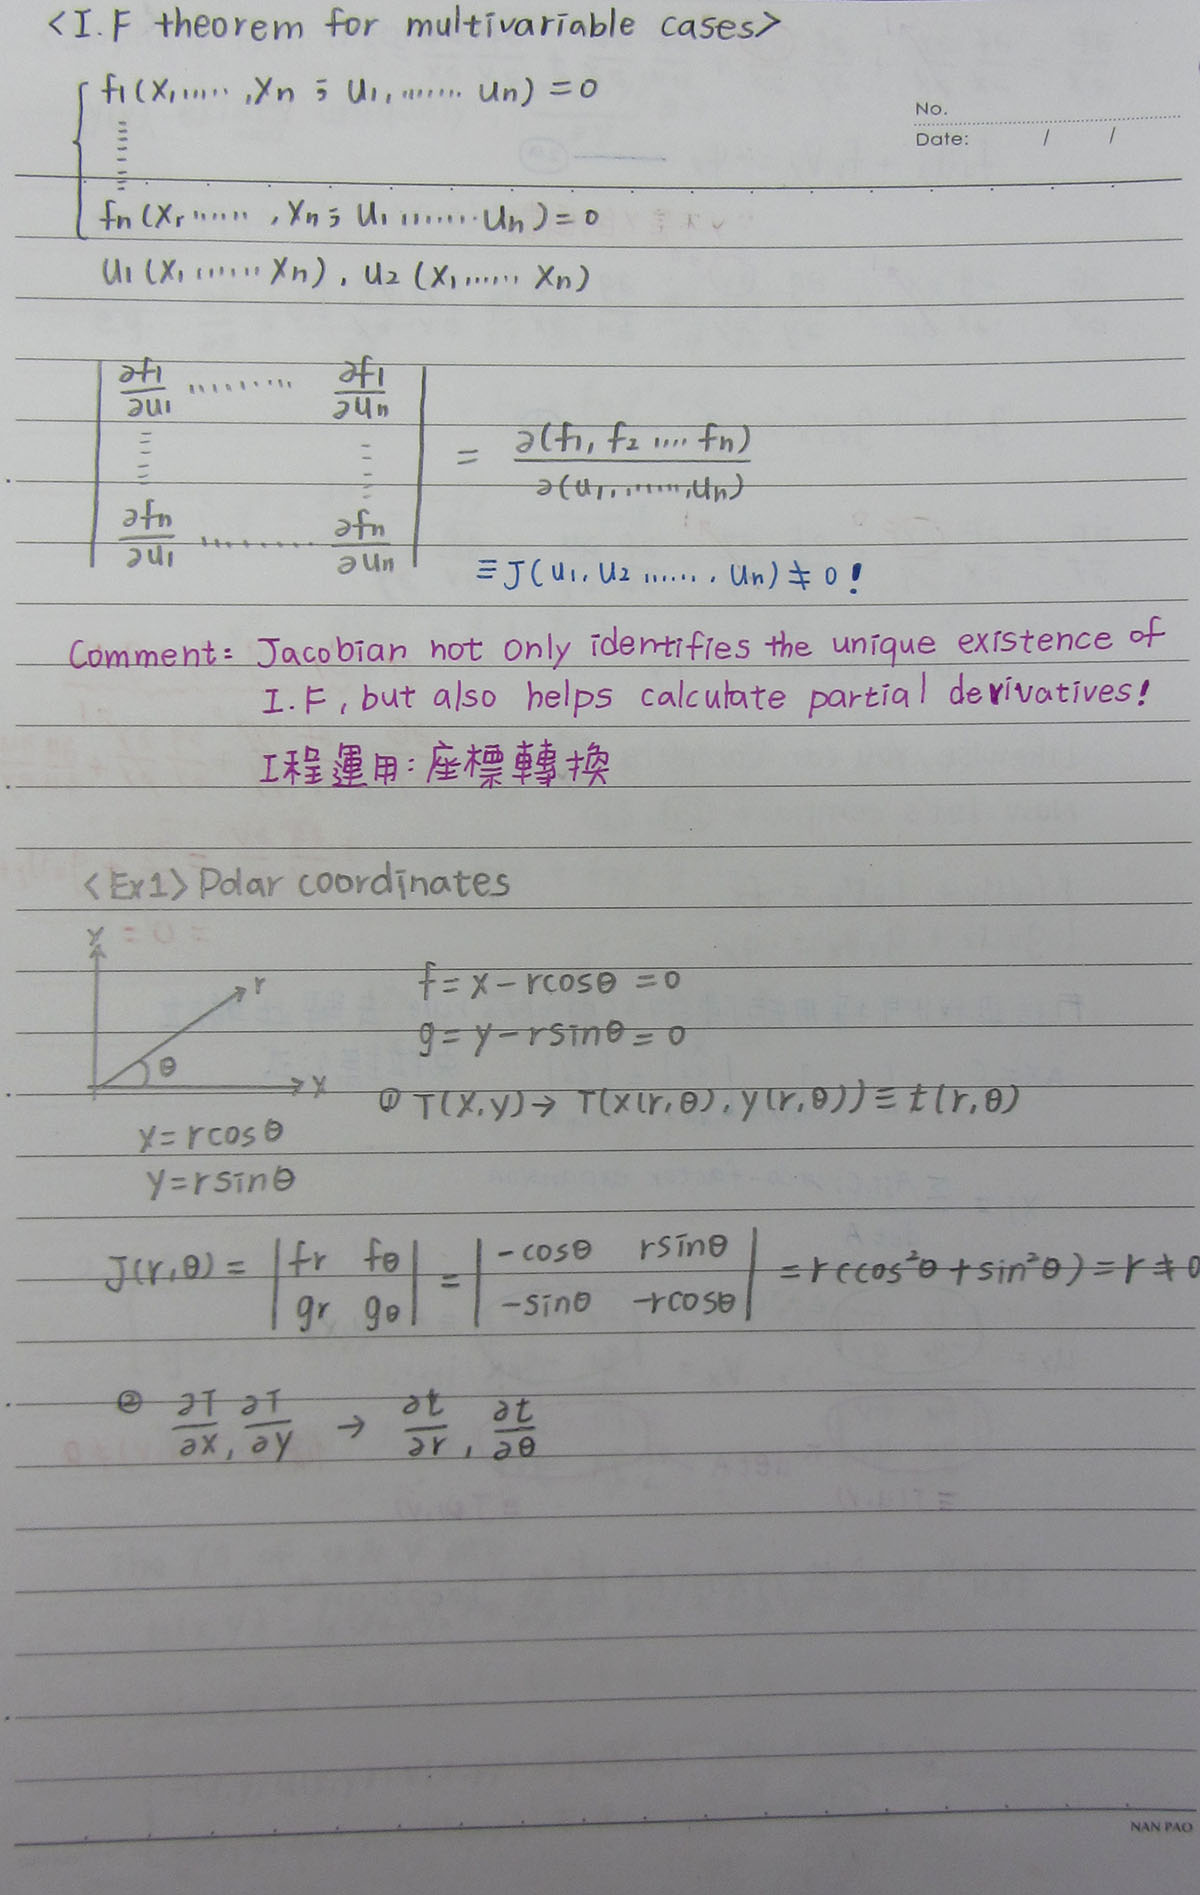 <I.F theorem for multivariable cases>
f1(x1,....., xn ; u1,....... un) = 0
No.
Date: / /
fn(x1,......, xn ; u1....... un) = 0
u1(x1,...... xn), u2(x1,...... xn)
| ∂f1/∂u1 ......... ∂f1/∂un |
| ∂fn/∂u1 ......... ∂fn/∂un | = ∂(f1, f2 .... fn)/∂(u1,......,un)
≡ J(u1, u2 ......, un) ≠ 0!
Comment: Jacobian not only identifies the unique existence of
I.F, but also helps calculate partial derivatives!
工程運用: 座標轉換
<Ex1> Polar coordinates
y
r
f = x - rcosθ = 0
g = y - rsinθ = 0
θ
x
① T(x,y) → T(x(r,θ), y(r,θ)) ≡ t(r,θ)
x = rcosθ
y = rsinθ
J(r,θ) = | fr fθ | = | -cosθ rsinθ | = r(cos²θ + sin²θ) = r ≠ 0
| gr gθ | | -sinθ -rcosθ |
② ∂T/∂x, ∂T/∂y → ∂t/∂r, ∂t/∂θ
NAN PAO